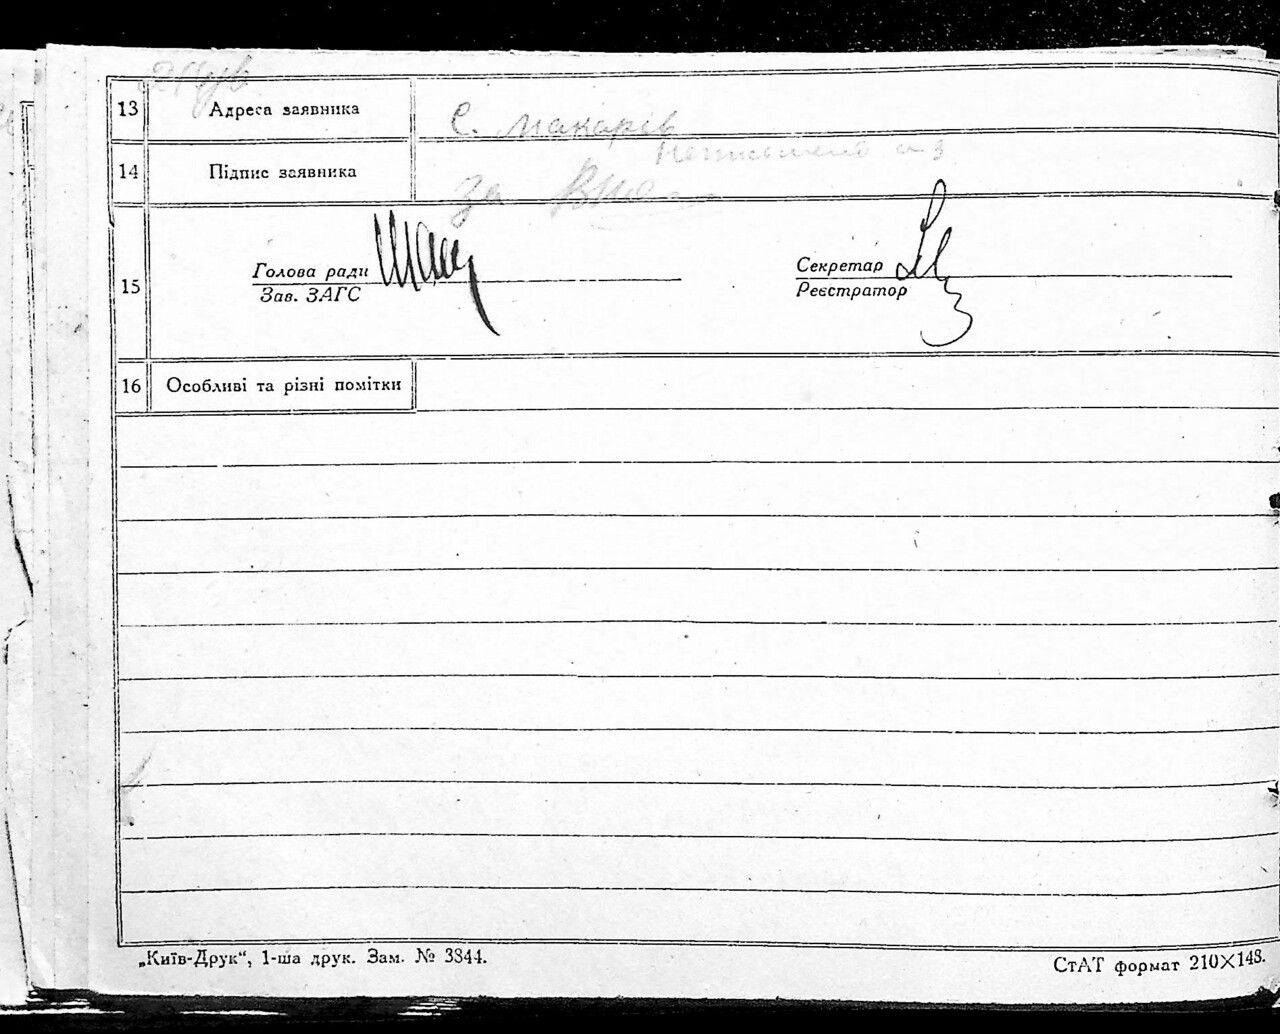 13 Адреса заявника с. Макарів
14 Підпис заявника за
Голова ради
Зав. ЗАГС
15
Секретар
Реєстратор
16 Особливі та різні помітки
„Київ-Друк“, 1-ша друк. Зам. № 3844.
СтАТ формат 210×148.